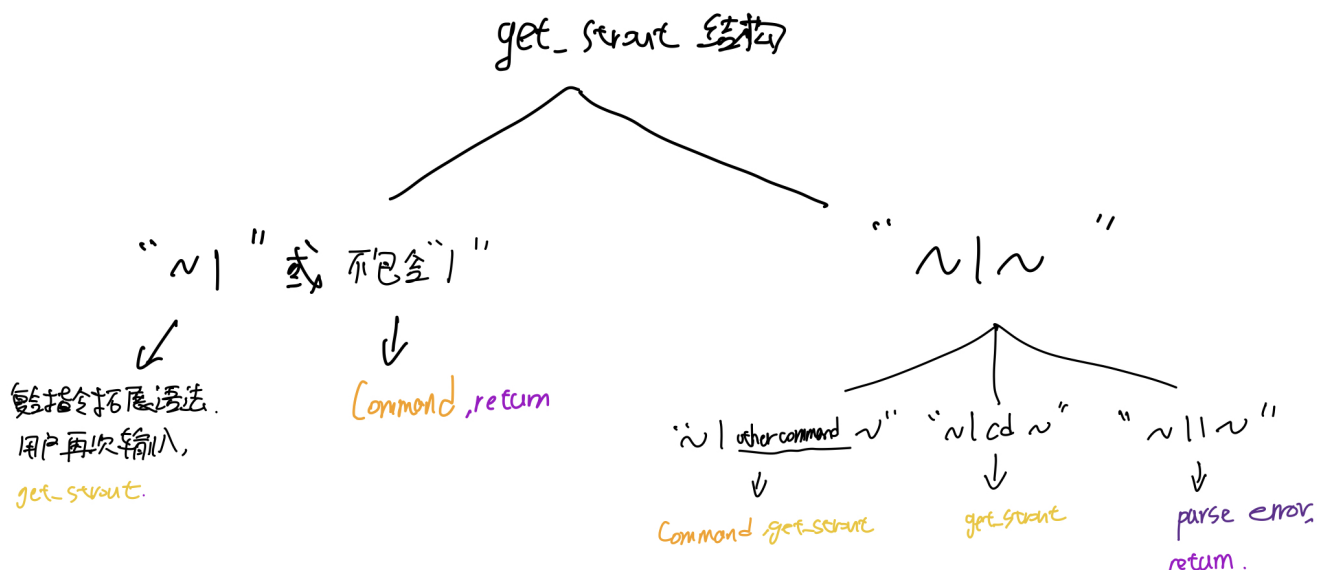 get_strout 结构
“~|” 或 不包含“|”
“~|~”
复合指令拓展语法.
用户再次输入,
get_strout.
Command, return
“~| other command ~”
“~| cd ~”
“~||~”
Command, get_strout
get_strout
parse error,
return.